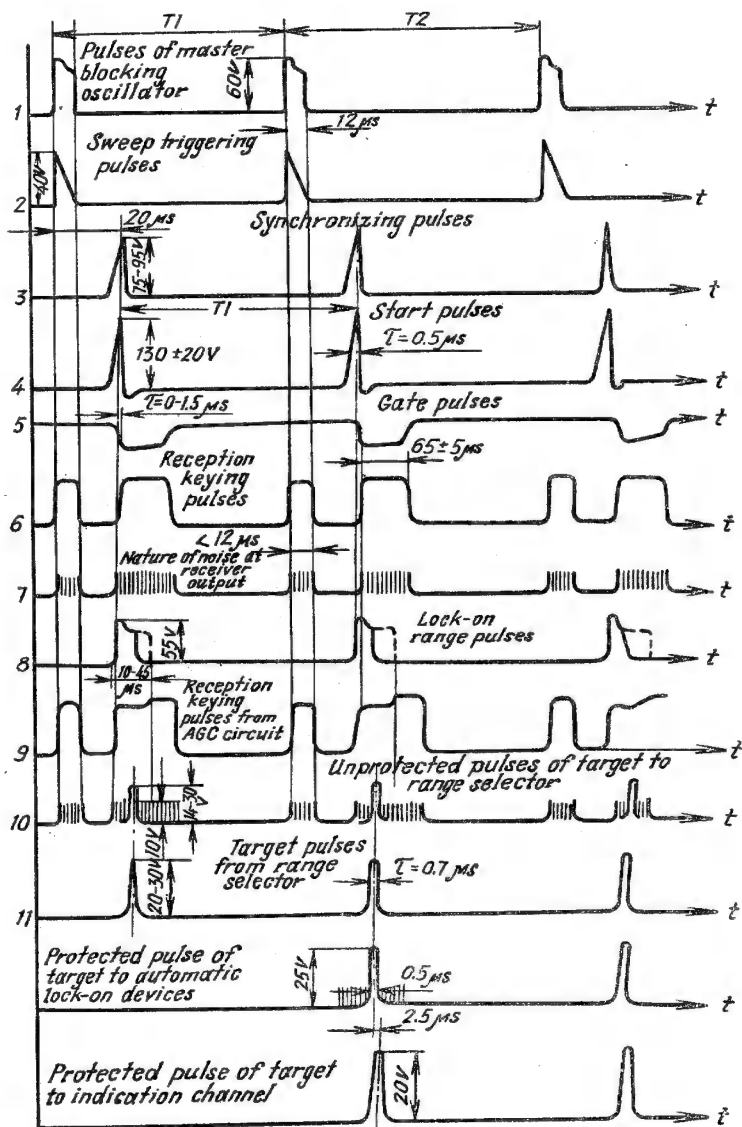 T1
T2
Pulses of master
blocking
oscillator
60V
1
t
12 μs
Sweep triggering
pulses
40V
2
t
20 μs
Synchronizing pulses
75-95V
3
t
T1
Start pulses
130 ±20V
τ=0.5 μs
4
t
τ=0-1.5 μs
Gate pulses
5
t
65±5 μs
Reception
keying
pulses
6
t
<12 μs
Nature of noise at
receiver
output
7
t
Lock-on
range pulses
55V
8
t
10-45
μs
Reception
keying
pulses from
AGC circuit
9
t
Unprotected pulses of target to
range selector
14-30
V
10
t
10V
Target pulses
from range
selector
20-30V
τ=0.7 μs
11
t
Protected pulse of
target to automatic
lock-on devices
25V
0.5 μs
t
2.5 μs
Protected pulse of target
to indication channel
20V
t